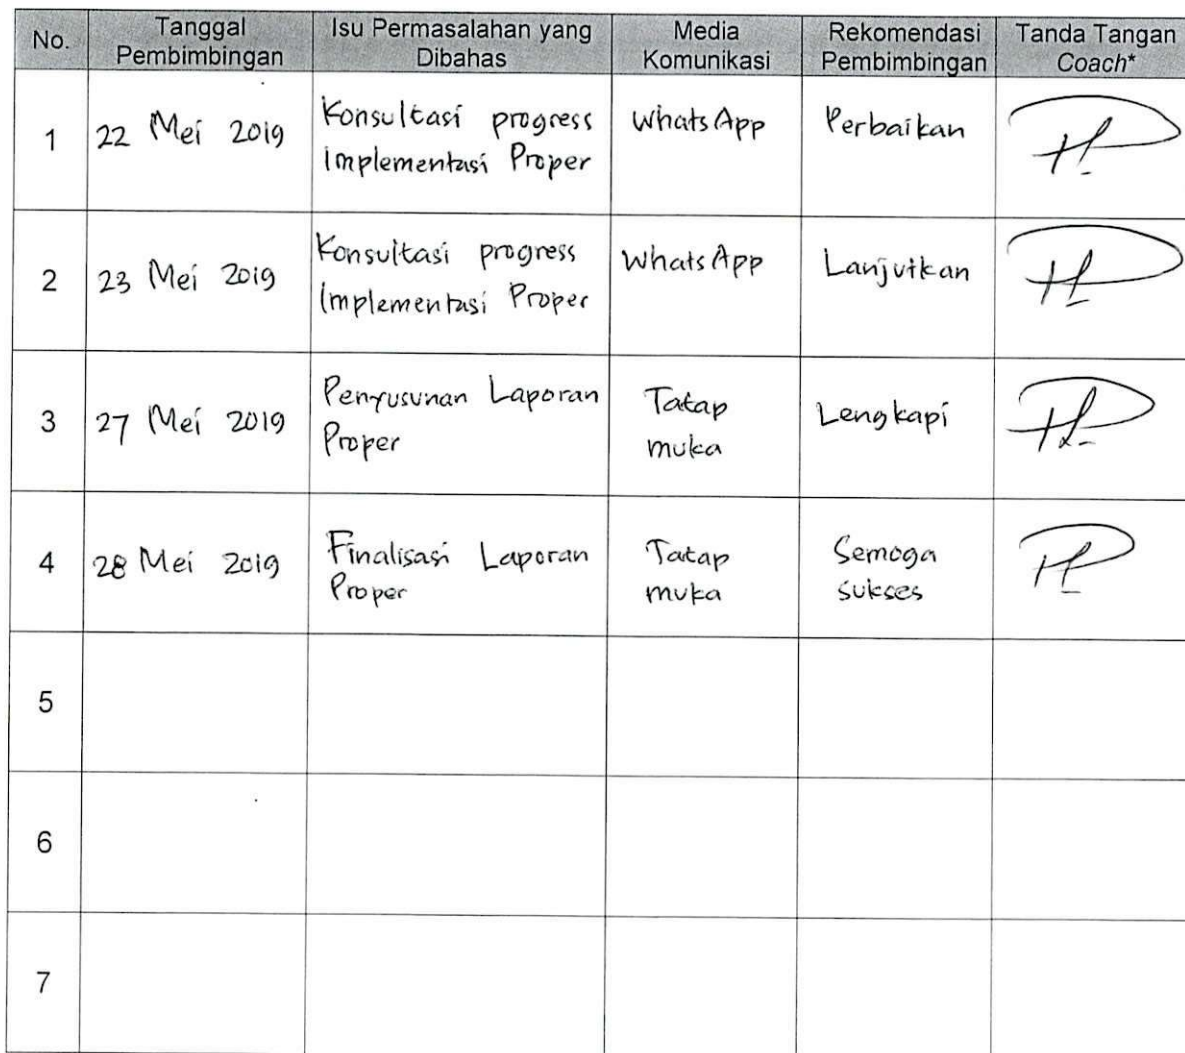 No. Tanggal Pembimbingan Isu Permasalahan yang Dibahas Media Komunikasi Rekomendasi Pembimbingan Tanda Tangan Coach*
1 22 Mei 2019 Konsultasi progress Implementasi Proper WhatsApp Perbaikan
2 23 Mei 2019 Konsultasi progress Implementasi Proper WhatsApp Lanjutkan
3 27 Mei 2019 Penyusunan Laporan Proper Tatap muka Lengkapi
4 28 Mei 2019 Finalisasi Laporan Proper Tatap muka Semoga sukses
5
6
7